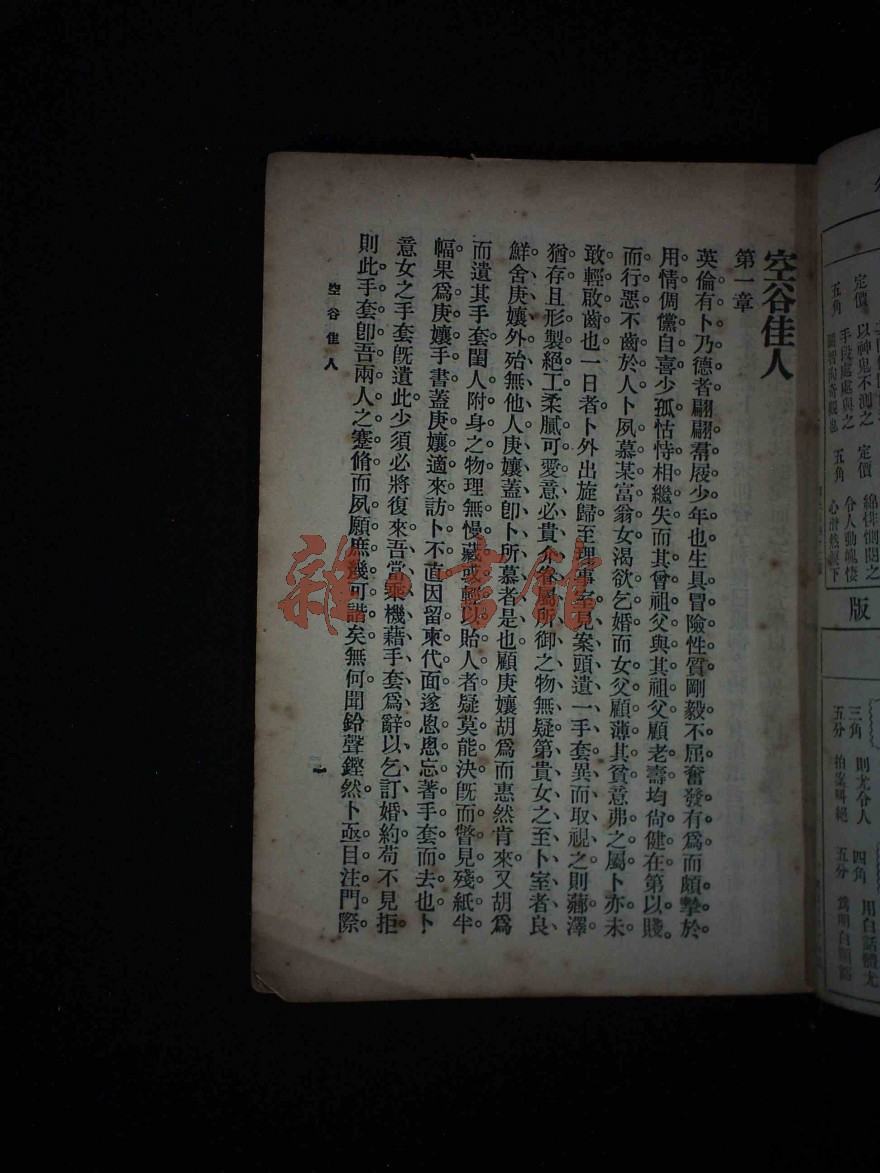 空谷佳人
第一章
英倫有卜乃德者翩翩羣屐少年也生具冒險性質剛毅不屈奮發有爲而頗摯於
用情倜儻自喜少孤怙恃相繼失而其曾祖父與其祖父顧老壽均尙健在第以賤
而行惡不齒於人卜夙慕某富翁女渴欲乞婚而女父顧薄其貧意弗之屬卜亦未
敢輕啟齒也一日者卜外出旋歸至理事室見案頭遺一手套異而取視之則薌澤
猶存且形製絕工柔膩可愛意必貴介眷屬所御之物無疑第貴女之至卜室者良
鮮舍庚孃外殆無他人庚孃蓋卽卜所慕者是也顧庚孃胡爲而惠然肯來又胡爲
而遺其手套閨人附身之物理無慢藏或輕以貽人者疑莫能決旣而瞥見殘紙半
幅果爲庚孃手書蓋庚孃適來訪卜不直因留柬代面遂悤悤忘著手套而去也卜
意女之手套旣遺此少須必將復來吾當乘機藉手套爲辭以乞訂婚約苟不見拒
則此手套卽吾兩人之蹇脩而夙願庶幾可諧矣無何聞鈴聲鏗然卜亟目注門際
空谷佳人
一
雜書館
定價
五角
以神鬼不測之
手段處處與之
定價
五角
令人動魄悽
版
三角
五分
則尤令人
拍案叫絕
四角
五分
用白話體尤
爲明白顯豁